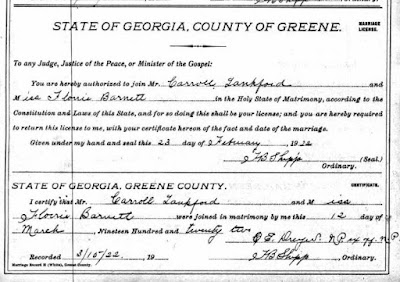 STATE OF GEORGIA, COUNTY OF GREENE.
MARRIAGE
LICENSE.
To any Judge, Justice of the Peace, or Minister of the Gospel:
You are hereby authorized to join Mr. Carroll Lankford and
Miss Floris Barnett in the Holy State of Matrimony, according to the
Constitution and Laws of this State, and for so doing this shall be your license; and you are hereby required
to return this license to me, with your certificate hereon of the fact and date of the marriage.
Given under my hand and seal this 23 day of February 1922
J H B Shipp (Seal.)
Ordinary.
STATE OF GEORGIA, GREENE COUNTY.
CERTIFICATE.
I certify that Mr. Carroll Lankford and Miss
Floris Barnett were joined in matrimony by me this 12 day of
March, Nineteen Hundred and twenty two
O E N.P. ex off. J.P.
Recorded 3/15/22 19
J H B Shipp
Ordinary.
Marriage Record H (White), Greene County.